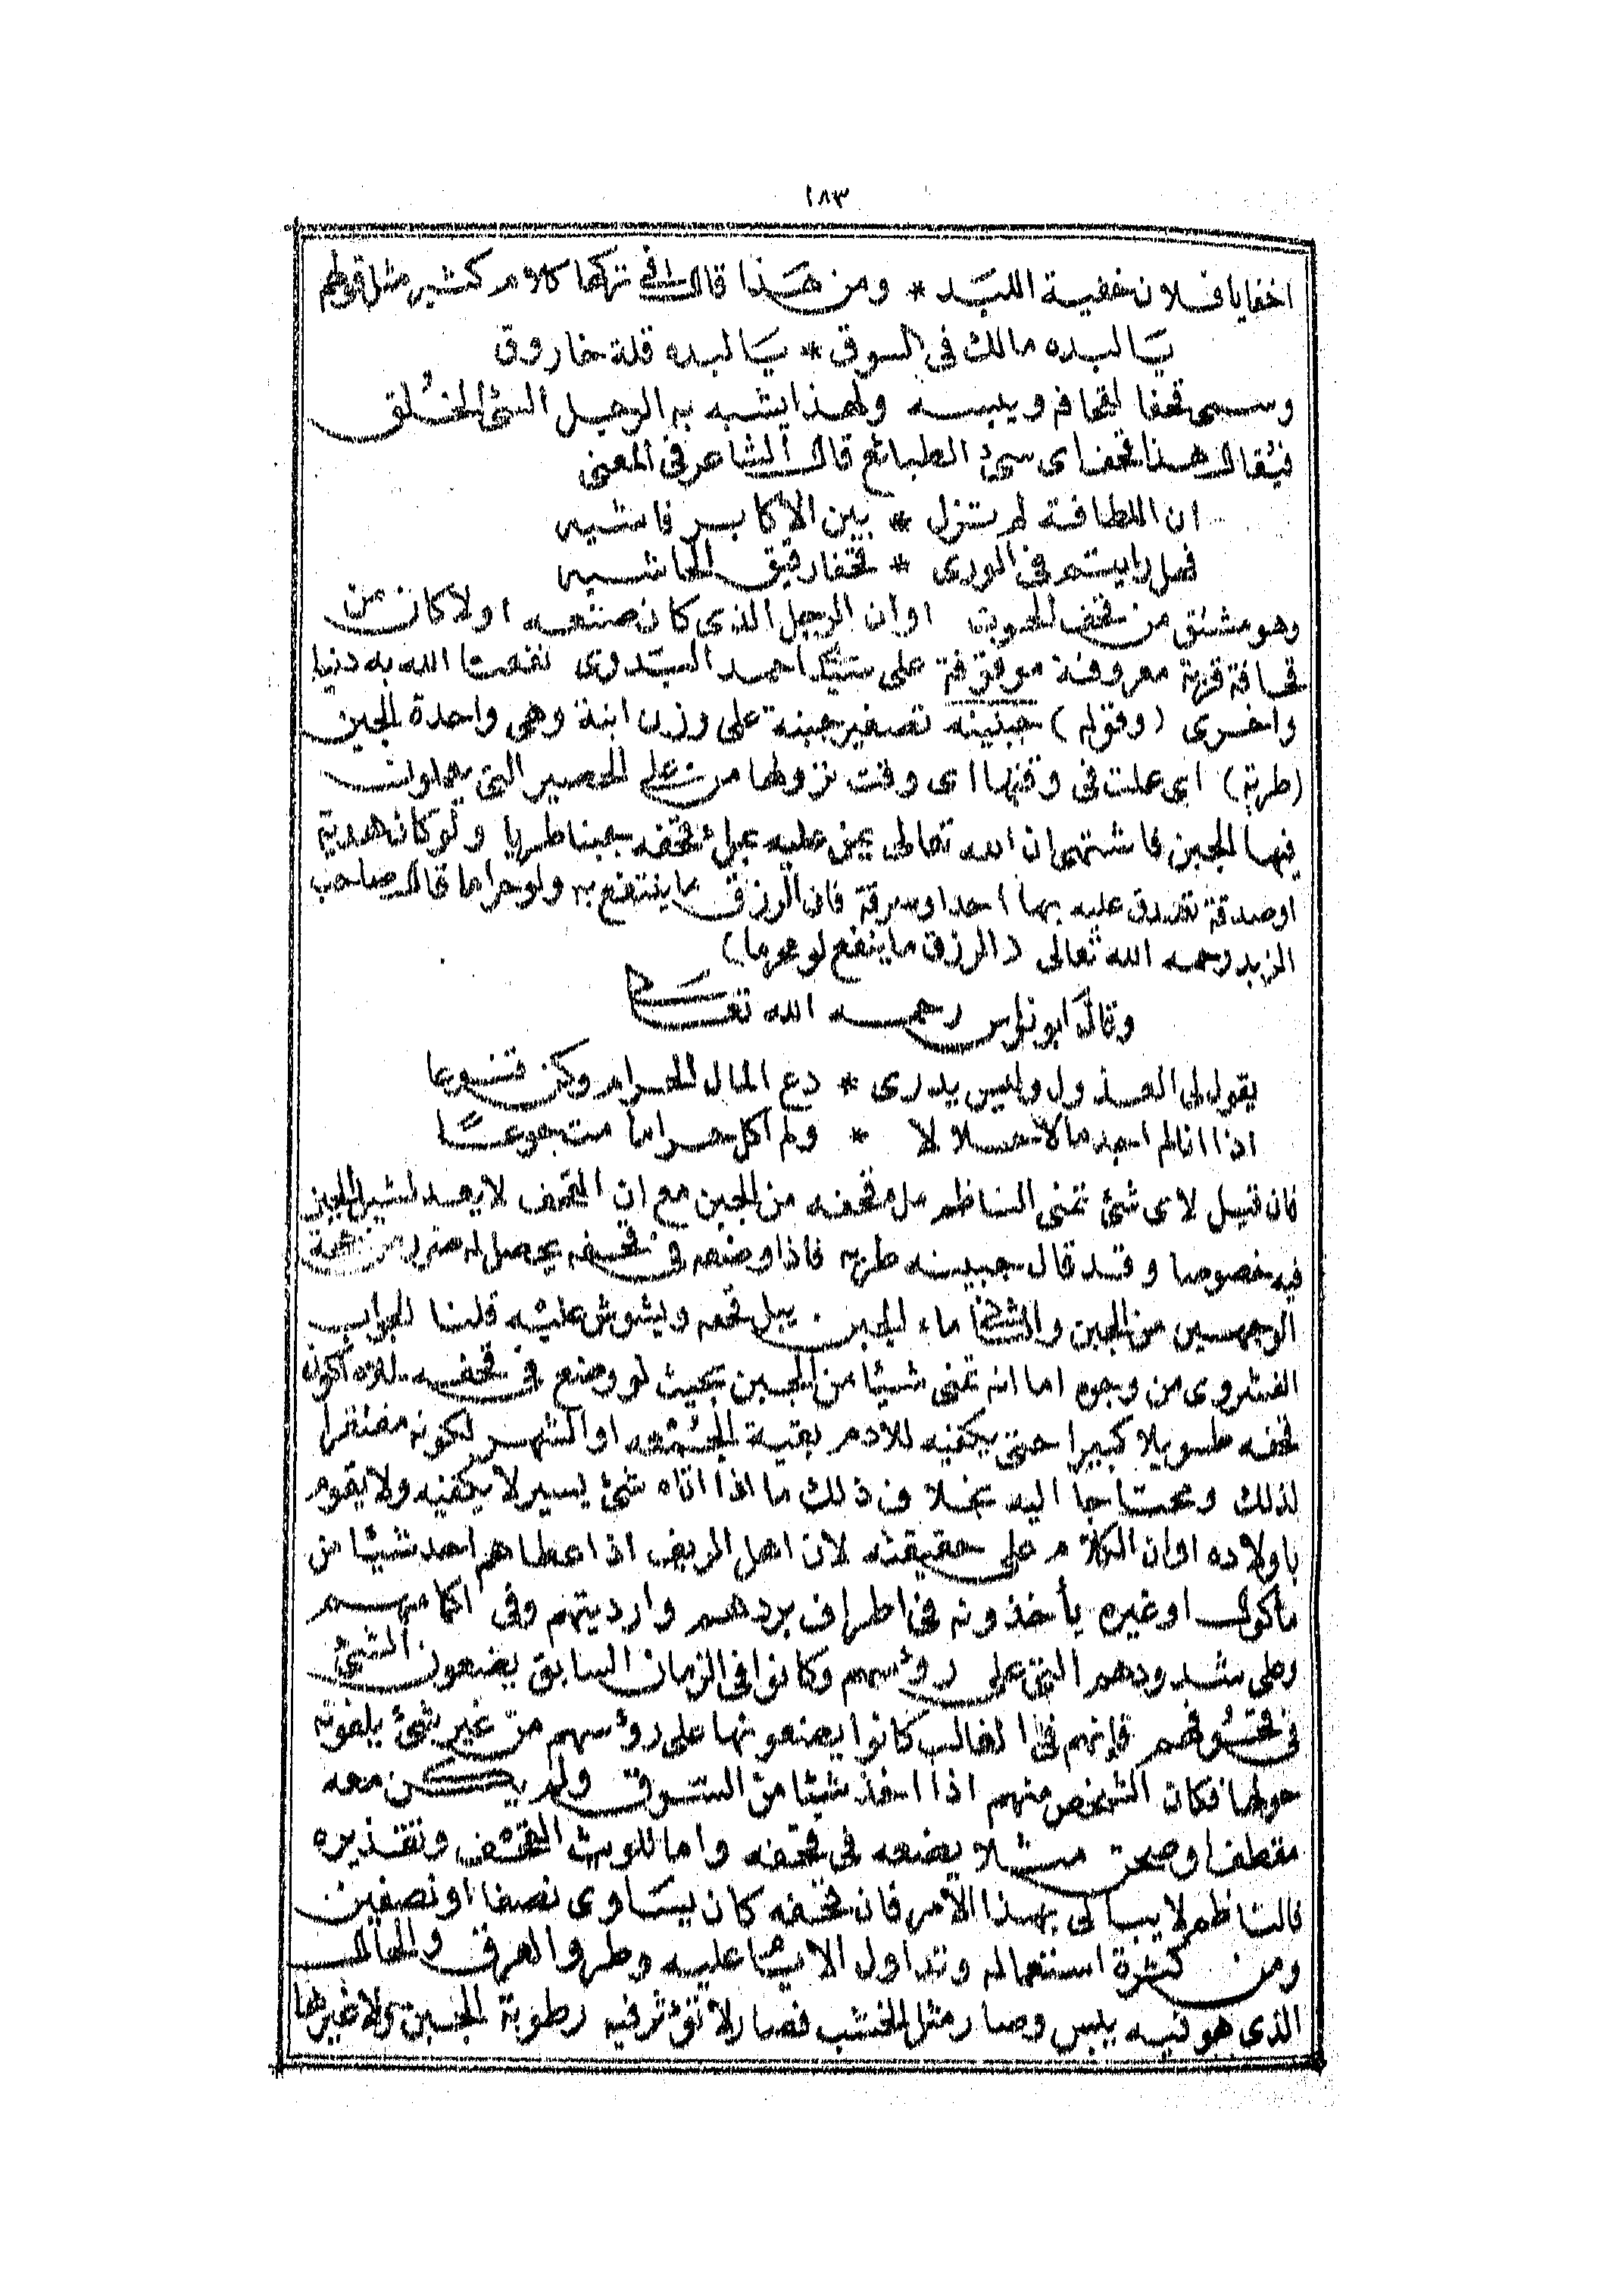 ١٨٣
اخفا يا فلان خفية اللبد * ومن هذا قالت في تركها كلام كثير مثل قولهم
يا لبده مالك في السوق * يا لبده قلة خاروق
وسمى قحفا لقحافه ويبسه ولهذا يشبه به الرجل السئ الخلق
فيقال هذا قحف اى سئ الطبائع قال الشاعر في المعنى
ان اللطافة لم تزل * بين الاكابر فاشيه
فهل رايتم في الورى * قحفا رقيق الحاشيه
وهو مشتق من قحف اوان الرجل الذى كان صنعه اولا كان من
قحافة قرية معروفة موقوفة على سيدى احمد البدوى نفعنا الله به دنيا
واخرى (وقوله) جبينه تصغير جبنة على وزن ابنة وهى واحدة الجبن
(طريه) اى عملت في وقتها اى وقت نزولها من على الحصير التى يعملون
فيها الجبن فاشتهى ان الله تعالى يمن عليه بملئ قحفه جبنا طريا ولو كان هدية
او صدقة تصدق عليه بها احد او سرقة فان الرزق ما ينتفع به ولو حراما قال صاحب
الزبد رحمه الله تعالى (الرزق ما ينفع لو محرما)
وقال ابو نواس رحمه الله تعالى
يقول لى العذول وليس يدرى * دع المال الحرام وكن قنوعا
اذا انا لم اجد مالا حلالا * ولم آكل حراما مت جوعا
فان قيل لاى شئ تمنى الناظم ملء قحفه من الجبن مع ان القحف لا يعد لشيل الجبن
فيه خصوصا وقد قال جبينه طريه فاذا وضعه في قحفه يحصل له ضرر من جهة
الوجهين من الجبن والشئ ماء الجبن يبل قحفه ويشوش عليه قلنا الجواب
الفشروى من وجوه اما انه تمنى شيئا من الجبن بحيث لو وضع في قحفه لملاه لكون
قحفه طويلا كبيرا حتى يكفيه للادم بقية الجمعه او الشهر لكونه مفتقرا
لذلك ومحتاجا اليه بخلاف ذلك ما اذا اتاه شئ يسير لا يكفيه ولا يقوم
باولاده اوان الكلام على حقيقته لان اهل الريف اذا اعطاهم احد شيئا من
مأكول او غيره يأخذونه في اطراف بردهم وارديتهم وفى اكمامهم
وعلى شدودهم التى على رؤسهم وكانوا في الزمان السابق يضعون الشئ
في قحوفهم فانهم في الغالب كانوا يضعونها على رؤسهم من غير شئ يلفونه
حولها فكان الشخص منهم اذا اخذ شيئا من السوق ولم يكن معه
مقطف او صحن مثلا يضعه في قحفه واما تلويث القحف وتقذيره
فالناظم لا يبالى بهذا الامر فان قحفه كان يساوى نصفا او نصفين
ومن كثرة استعماله وتداول الايام عليه وطرو العرق والحال
الذى هو فيه يبس وصار مثل الخشب فصار لا تؤثر فيه رطوبة الجبن ولا غيرها